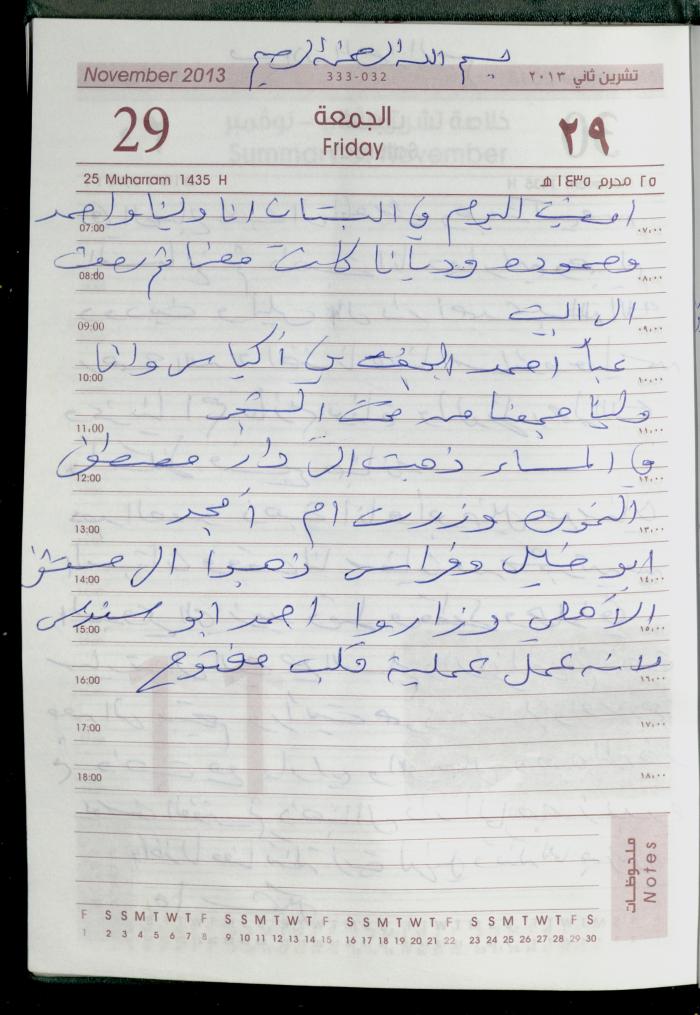 بسم الله الرحمن الرحيم
November 2013 333-032 تشرين ثاني ٢٠١٣
29 الجمعة ٢٩
Friday
25 Muharram 1435 H ٢٥ محرم ١٤٣٥ هـ
امضيت اليوم في البستان انا ولينا واحمد
07:00 ٠٧:٠٠
وحموده وديانا كانت معنا ثم رجعت
08:00 ٠٨:٠٠
الى البيت
09:00 ٠٩:٠٠
عبأ احمد الجفت في أكياس وانا
10:00 ١٠:٠٠
ولينا جمعنا من تحت الشجر
11:00 ١١:٠٠
في المساء ذهبت الى دار مصطفى
12:00 ١٢:٠٠
وزرت ام أمجد
13:00 ١٣:٠٠
ابو خليل وفراس ذهبوا الى مستشفى
14:00 ١٤:٠٠
الأهلي وزاروا احمد ابو سندس
15:00 ١٥:٠٠
لانه عمل عملية قلب مفتوح
16:00 ١٦:٠٠
17:00 ١٧:٠٠
18:00 ١٨:٠٠
ملحوظات
Notes
F S S M T W T F S S M T W T F S S M T W T F S S M T W T F S
1 2 3 4 5 6 7 8 9 10 11 12 13 14 15 16 17 18 19 20 21 22 23 24 25 26 27 28 29 30